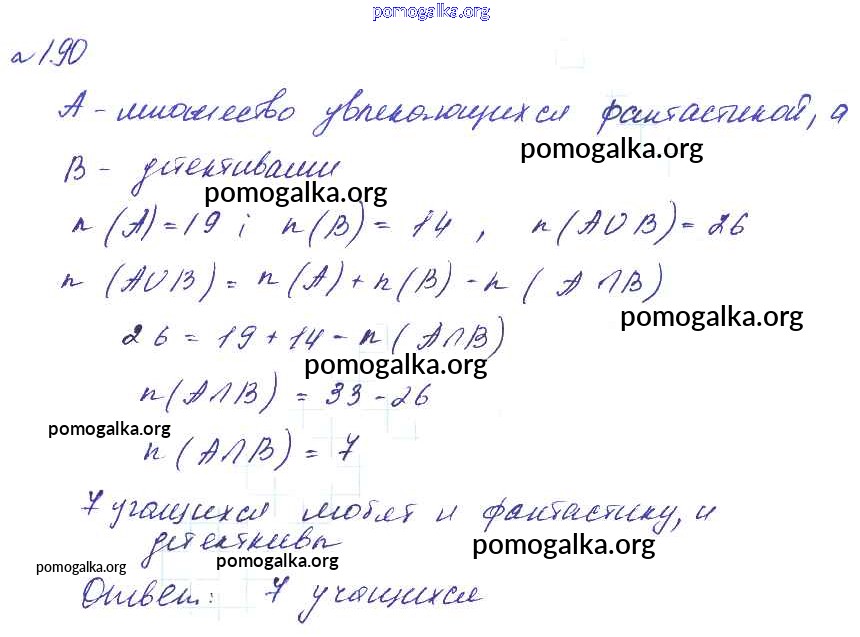 pomogalka.org
№190
A - множество увлекающихся фантастикой, а
pomogalka.org
B - детективами
pomogalka.org
n (A) = 19 ; n (B) = 14 , n (A∪B) = 26
n (A∪B) = n (A) + n (B) - n ( A ∩B)
pomogalka.org
26 = 19 + 14 - n ( A∩B)
pomogalka.org
n (A∩B) = 33 - 26
pomogalka.org
n (A∩B) = 7
7 учащихся любят и фантастику, и
детективы
pomogalka.org
pomogalka.org
pomogalka.org
Ответ: 7 учащихся